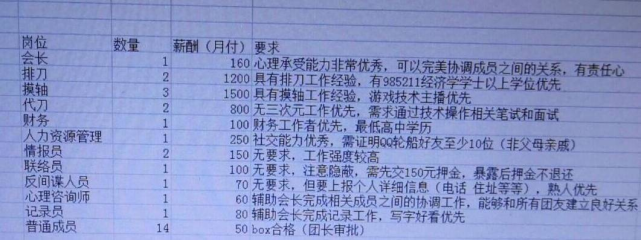 岗位 数量 薪酬（月付） 要求
会长 1 160 心理承受能力非常优秀，可以完美协调成员之间的关系，有责任心
排刀 2 1200 具有排刀工作经验，有985211经济学学士以上学位优先
摸轴 3 1500 具有摸轴工作经验，游戏技术主播优先
代刀 2 800 无三次元工作优先，需求通过技术操作相关笔试和面试
财务 1 100 财务工作者优先，最低高中学历
人力资源管理 1 250 社交能力优秀，需证明QQ轮船好友至少10位（非父母亲戚）
情报员 2 150 无要求，工作强度较高
联络员 1 100 无要求，注意隐蔽，需先交150元押金，暴露后押金不退还
反间谍人员 1 70 无要求，但要上报个人详细信息（电话 住址等等），熟人优先
心理咨询师 1 60 辅助会长完成相关成员之间的协调工作，能够和所有团友建立良好关系
记录员 1 80 辅助会长完成记录工作，写字好看优先
普通成员 14 50 box合格（团长审批）